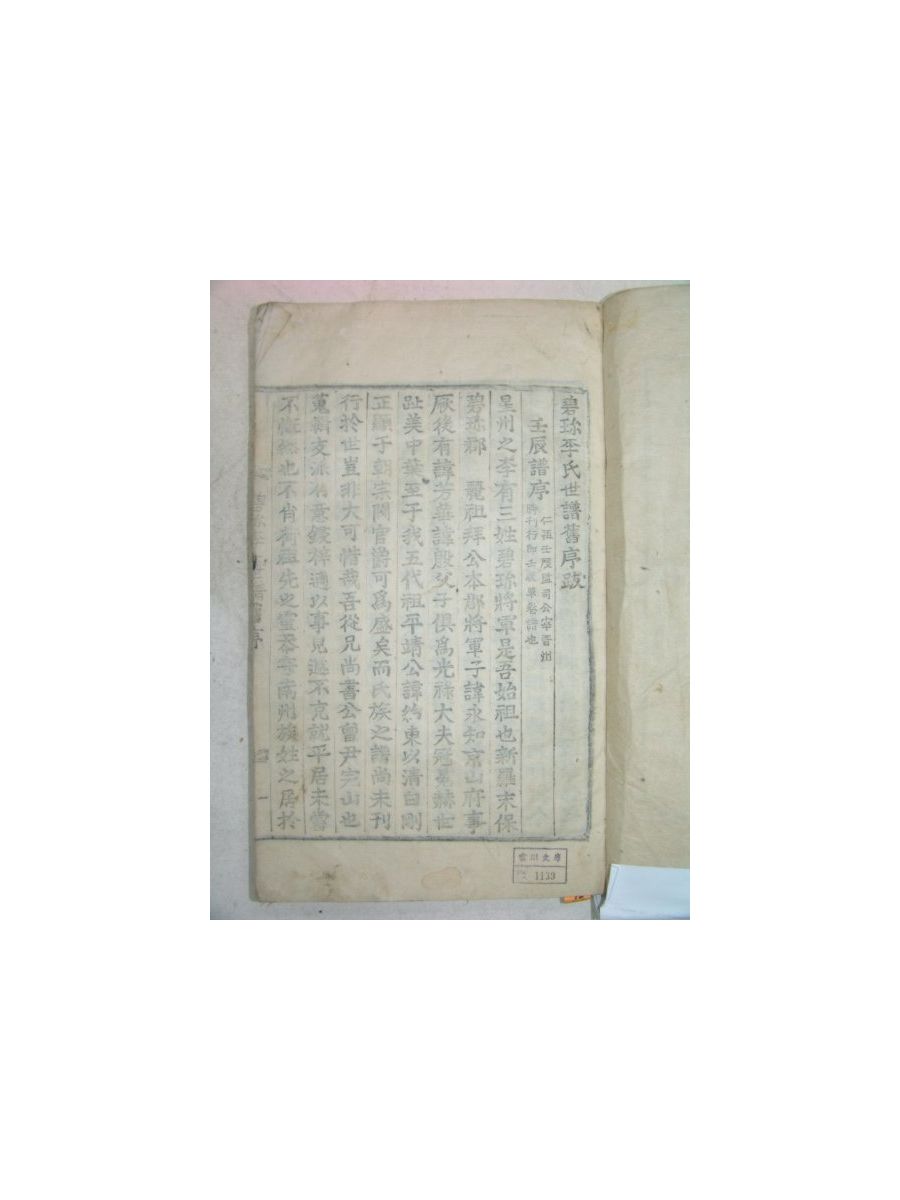 碧珍李氏世譜舊序跋
壬辰譜序
仁祖壬辰監司公宰晋州
時刊行即壬辰單卷譜也
星州之李有三姓碧珍將軍是吾始祖也新羅末保
碧珍郡 麗祖拜公本郡將軍子諱永知京山府事
厥後有諱芳華諱殷父子俱爲光祿大夫冠冕赫世
趾美中葉至于我五代祖平靖公諱約東以清白剛
正顯于朝崇閥官爵可爲盛矣而氏族之譜尚未刊
行於世豈非大可惜哉吾從兄尚書公曾尹完山也
蒐輯支派有意鋟梓適以事見遞不克就平居未嘗
不慨然也不肖荷祖先之靈忝守南州族姓之居於
序
一
文庫
1133